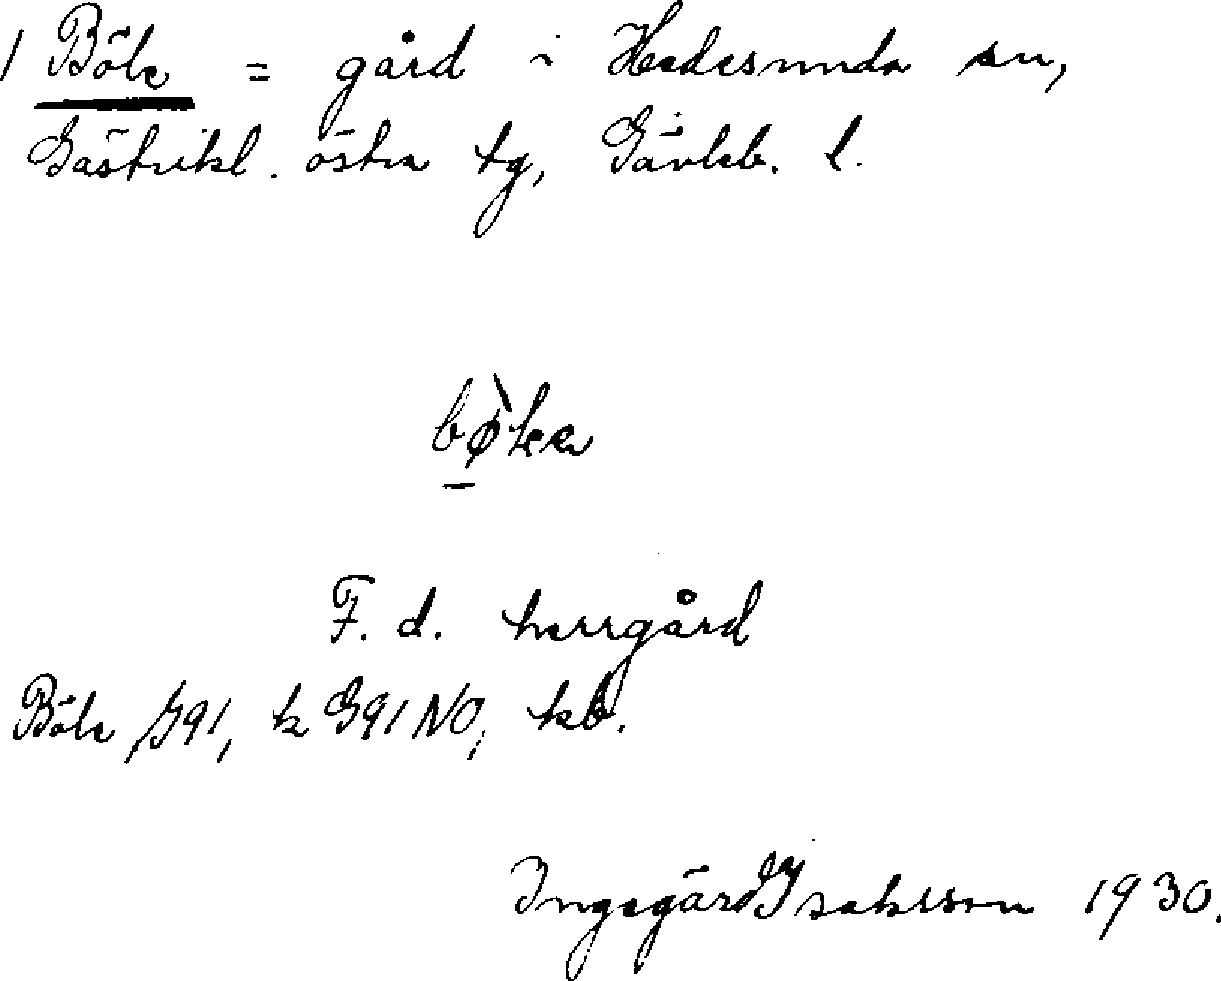 1 Böle = gård i Hedesunda sn,
Gästrikl. östra tg, Gävleb. l.
F. d. herrgård
Böle G91, k G91 NO, kb.
Ingegärd Isaksson 1930.